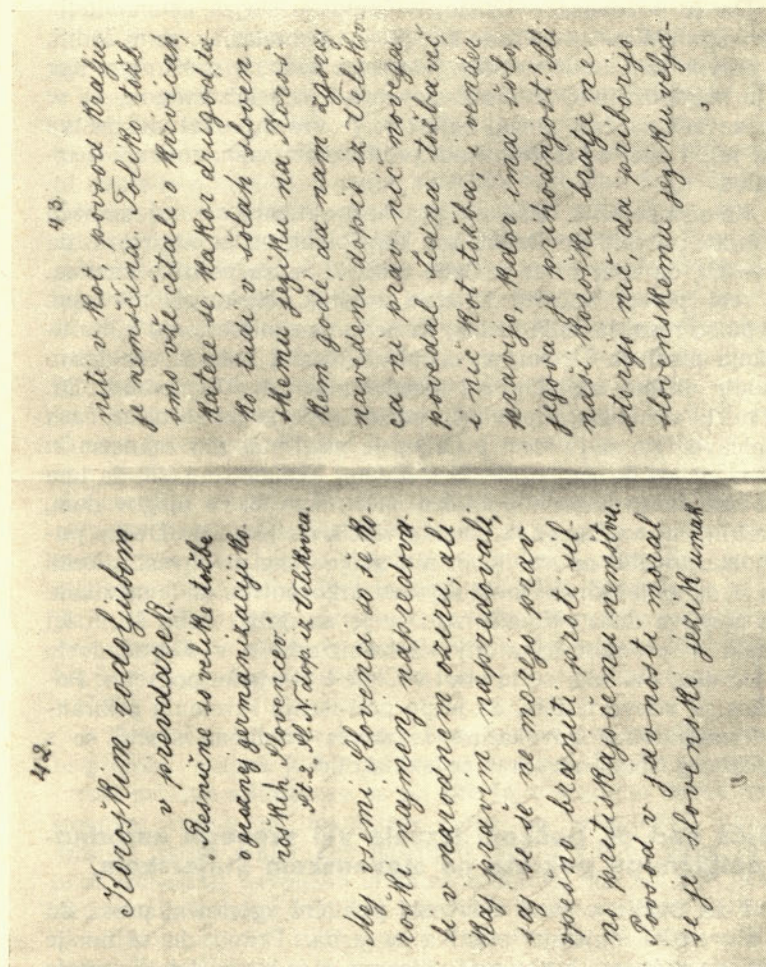 42.
Koroškim rodoljubom
v prevdarek.
„Resnične so velike tožbe
o groznej germanizaciji ko
roških Slovencev."
Št. 2. Sl. N. dop. iz Velikovca.
Mej vsemi Slovenci so se ko-
roški najmenj napredova-
li v narodnem oziru, ali
kaj pravim napredovali,
saj se še ne morejo prav
vspešno braniti proti sil-
no pritiskajočemu nemštvu.
Povsod v javnosti moral
se je slovenski jezik umak-
43.
niti v kot, povsod kraljuj
je nemščina. Toliko tožb
smo vže čitali o krivicah,
katere se, kakor drugod, ta-
ko tudi v šolah sloven
skemu jeziku na Koroš
kem godé, da nam zgoraj
navedeni dopis iz Velikov
ca ni prav nič novega
povedal. Jedna tožba več,
i nič kot tožba, i vender
pravijo, kdor ima šolo,
jegova je prihodnjost! Ali
naši koroški bratje ne
storijo nič, da priborijo
slovenskemu jeziku velja-